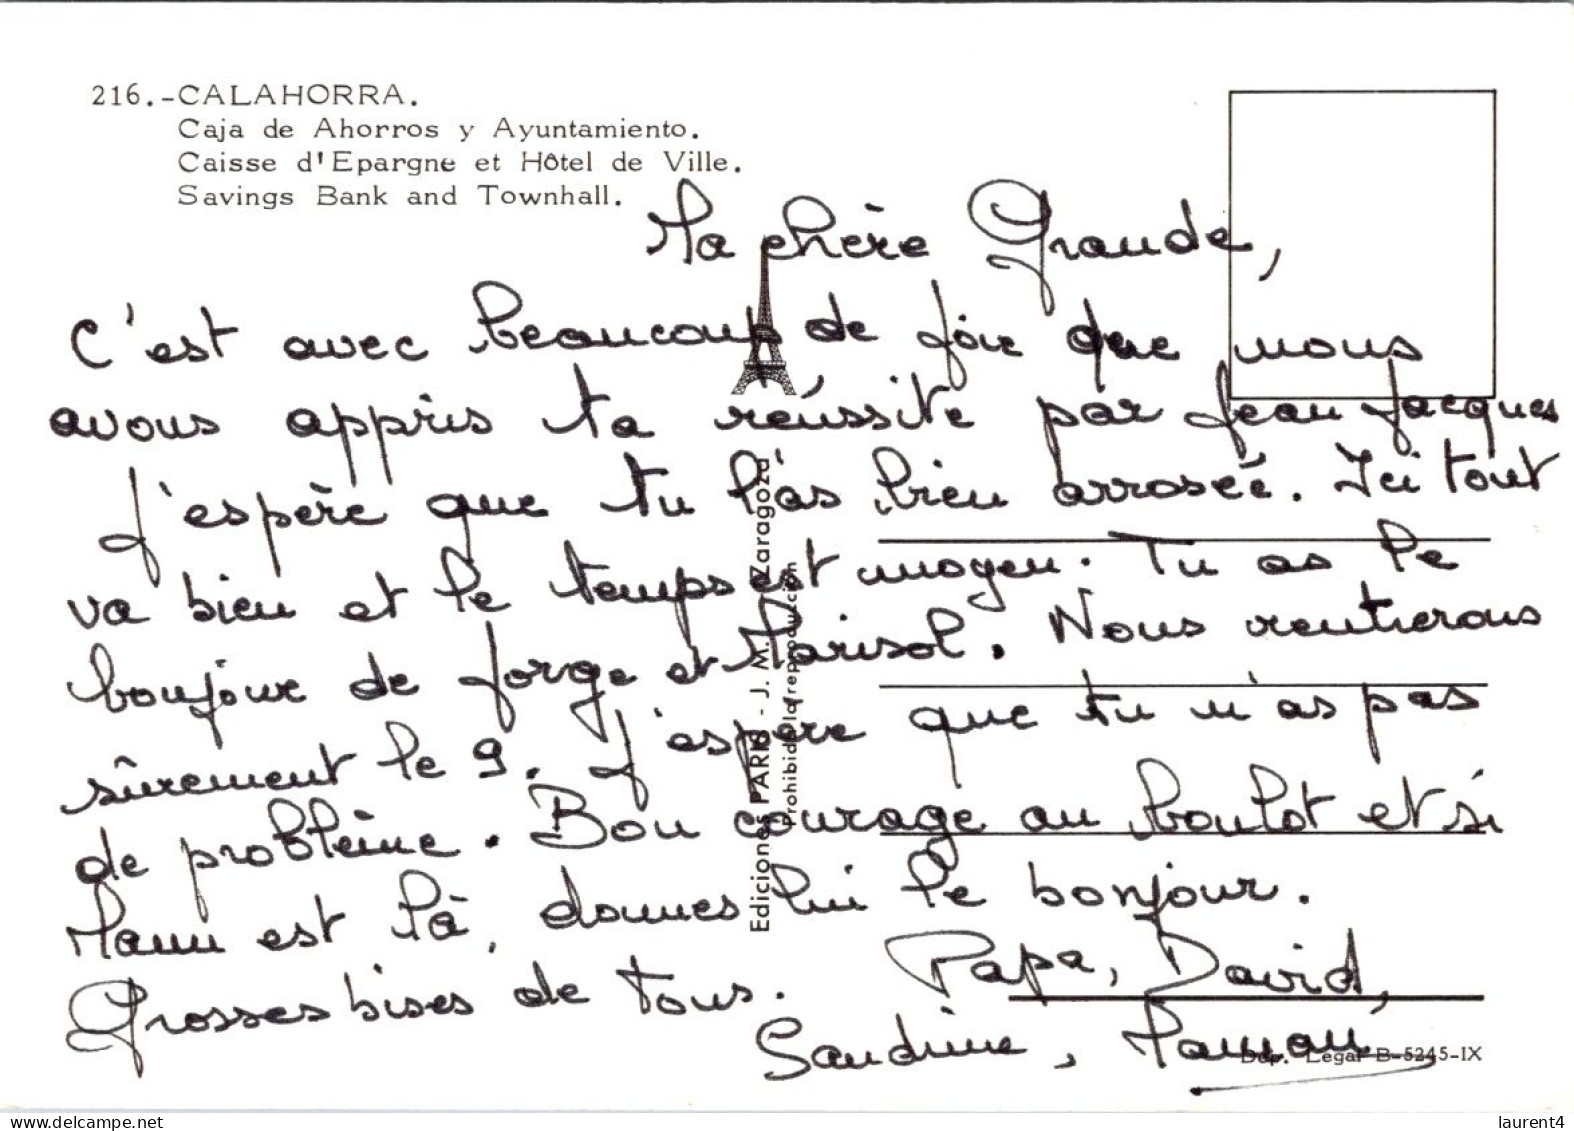 216.-CALAHORRA.
Caja de Ahorros y Ayuntamiento.
Caisse d'Epargne et Hôtel de Ville.
Savings Bank and Townhall.
Ma chère Grande,
C'est avec beaucoup de joie que nous
avons appris ta réussite par Jean Jacques
J'espère que tu l'as bien arrosée. Ici tout
va bien et le temps est moyen. Tu as le
bonjour de Jorge et Marisol. Nous rentrerons
sûrement le 9. J'espère que tu n'as pas
de problème. Bon courage au boulot et si
Manu est là, donnes lui le bonjour.
Grosses bises de tous. Papa, David,
Sandrine, Maman
Ediciones PARIS - J. M. Zaragoza
Prohibida la reproducción
Dep. Legal B-5245-IX
delcampe.net
laurent4